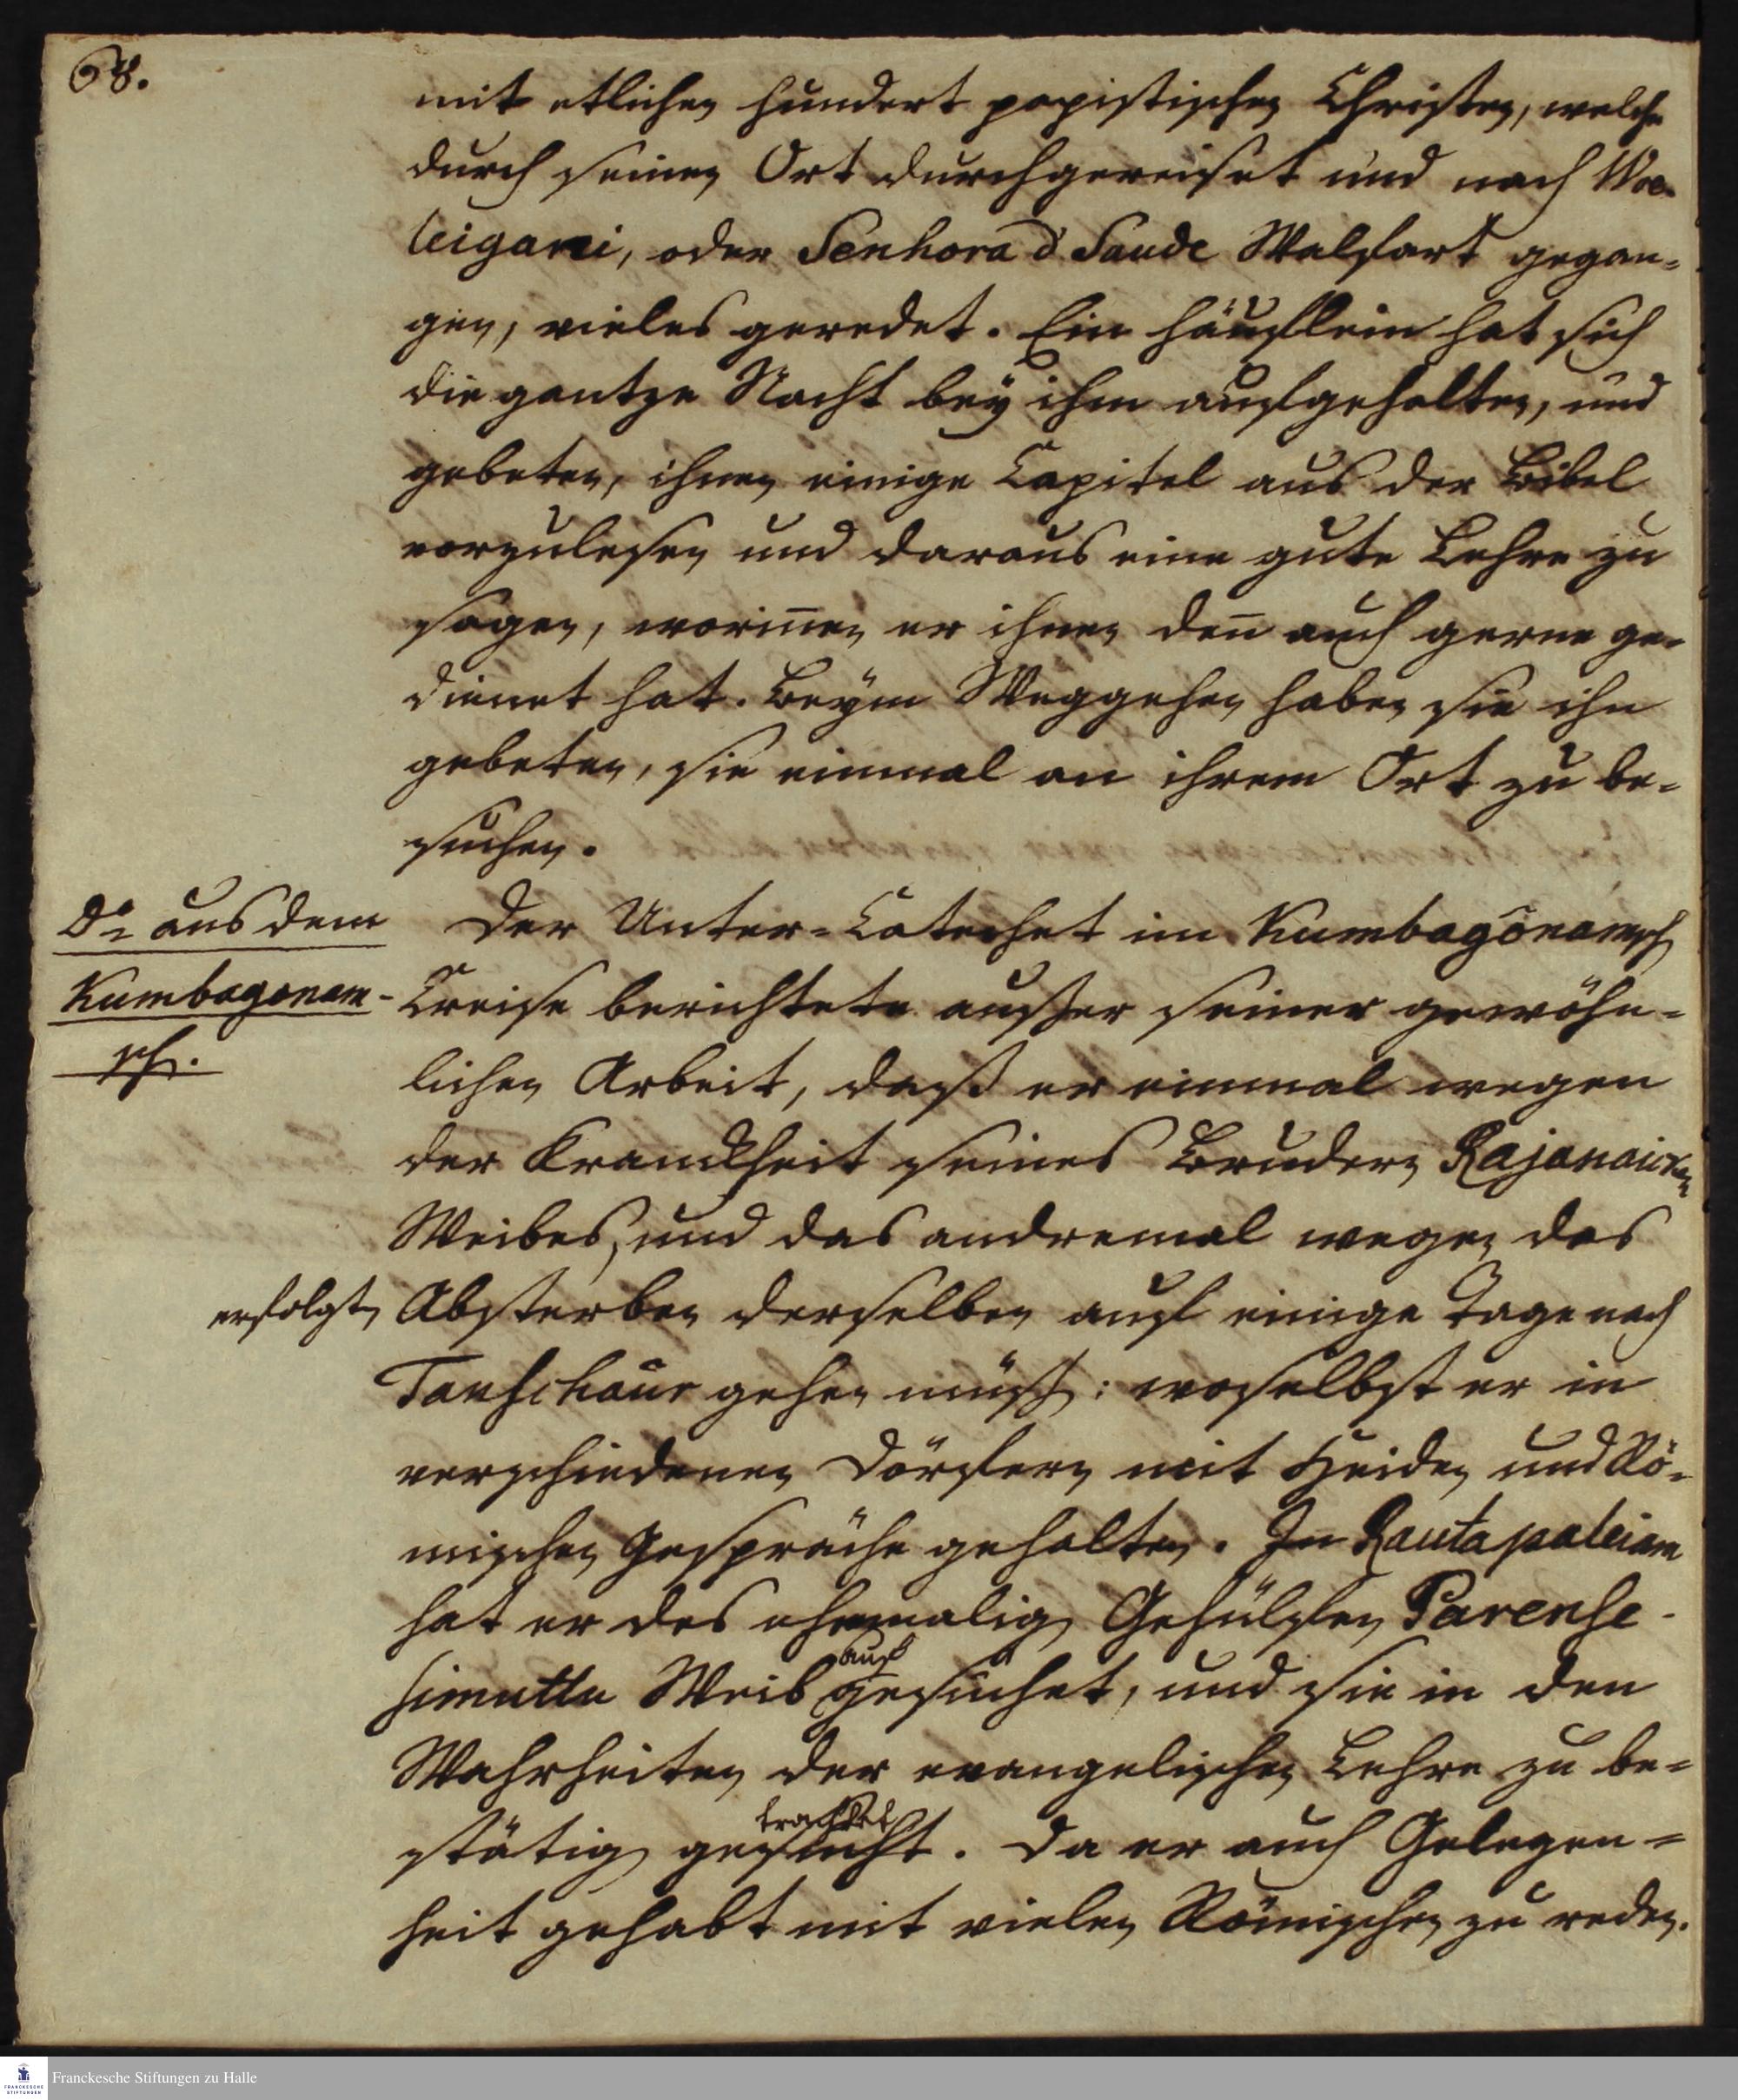 68.
mit etlichen hundert papistischen Christen, welche
durch seinen Ort durchgereiset und nach Woe-
leigami, oder Senhora d' Saude Walfart gegan-
gen, vieles geredet. Ein häuflein hat sich
die gantze Nacht bey ihm aufgehalten, und
gebeten, ihnen einige Capitel aus der Bibel
vorzulesen und daraus eine gute Lehre zu
sagen, woriñen er ihnen deñ auch gerne ge-
dienet hat. Beym Weggehen haben sie ihn
gebeten, sie einmal an ihrem Ort zu be-
suchen.
Do aus dem
Kumbagonam-
sch.
Der Unter-Catechet im Kumbagonamsch
Creise berichtete ausser seiner gewöhn-
lichen Arbeit, dass er einmal wegen
der Kranckheit seines Bruders Rajanaicken
Weibes, und das andremal wegen des
erfolgten Absterben derselben auf einige Tage nach
Tanschaur gehen müssen: woselbst er in
verschiedenen Dörfern mit Heiden und Rö-
mischen Gespräche gehalten. In Rautapaleiam
hat er des ehemaligen Gehülfen Parensc-
himuttu Weib gesuchet, und sie in den
auf
Wahrheiten der evangelischen Lehre zu be-
stätigen gesucht. Da er auch Gelegen-
trachtet
heit gehabt mit vielen Römischen zu reden.
Franckesche Stiftungen zu Halle